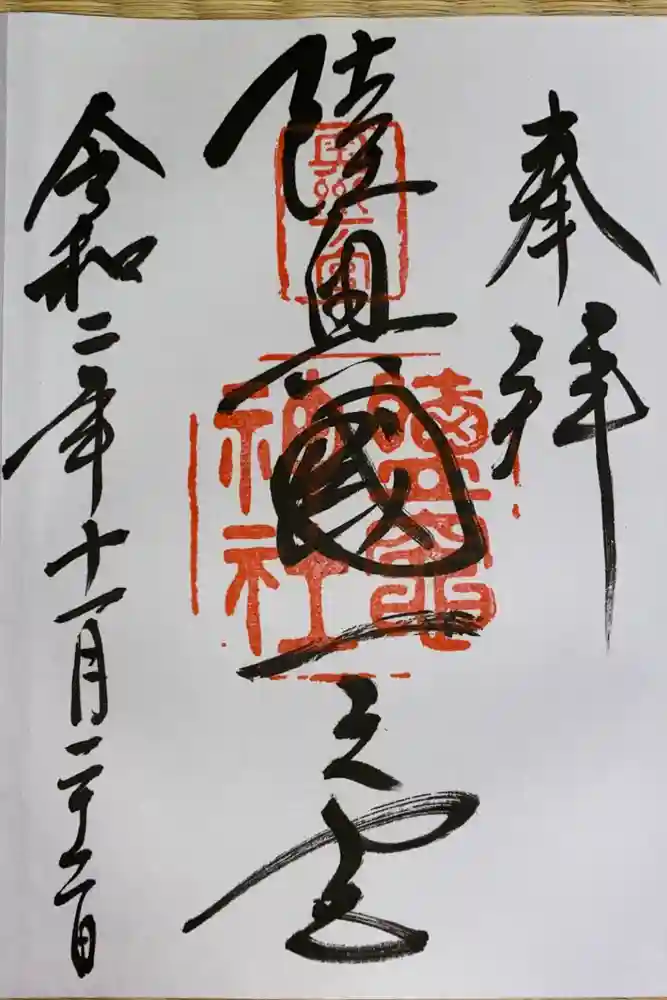 奉拝
陸奥國一之宮
奥州一宮
鹽竈神社
令和二年十一月二十二日